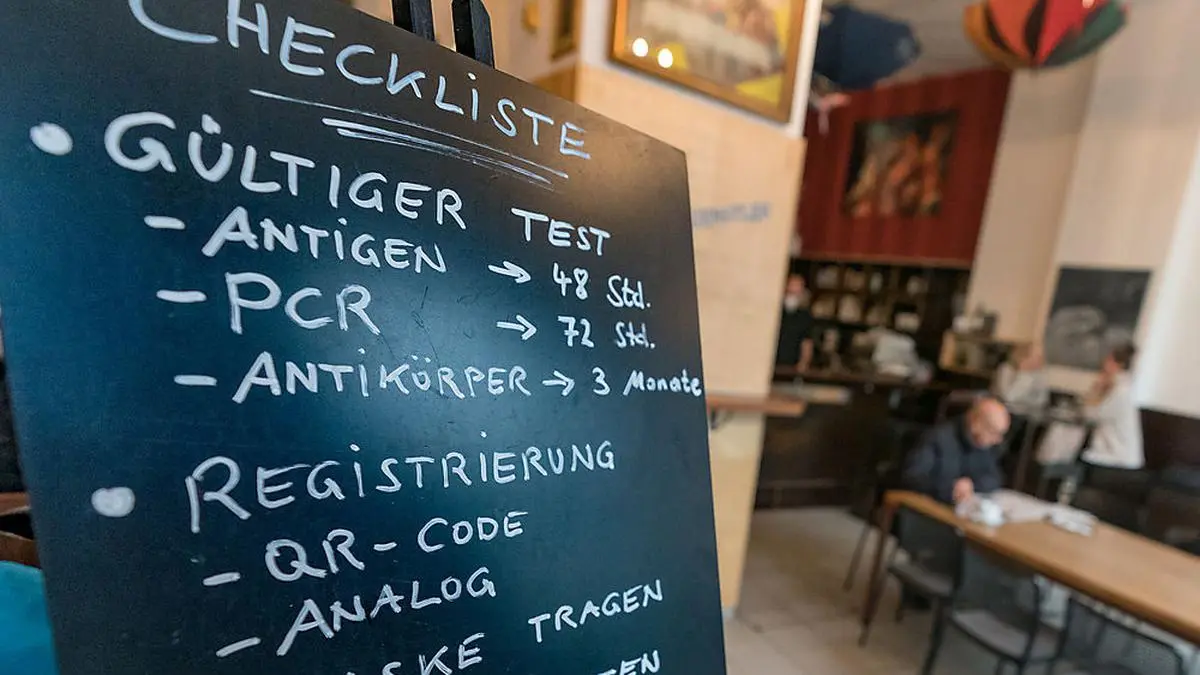 CHECKLiSTE
• GÜLTIGER TEST
- ANTIGEN → 48 Std.
- PCR → 72 Std.
- ANTIKÖRPER → 3 Monate
• REGiSTRIERUNG
- QR-CODE
- ANALOG
TRAGEN